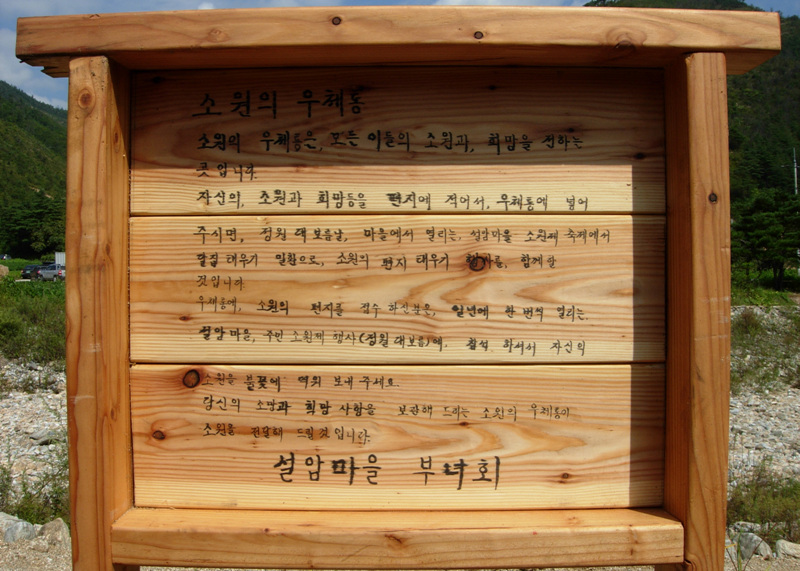 소원의 우체통
소원의 우체통은, 모든 이들의 소원과, 희망을 전하는
곳입니다.
자신의, 소원과 희망등을 편지에 적어서, 우체통에 넣어
주시면, 정월 대보름날, 마을에서 열리는, 설암마을 소원제 축제에서
달집 태우기 일환으로, 소원의 편지 태우기 를, 함께할
것입니다
우체통에, 소원의 편지를 접수 하신분은, 일년에 한 번씩 열리는.
설암마을, 주민 소원제 행사(정월대보름)에, 참석 하셔서 자신의
소원을 불꽃에 역워 보네 주세요.
당신의 소망과 희망 사랑을 보관해 드리는 소원의 우체통이
소원을 전달해 드릴것입니다.
설암마을 부녀회